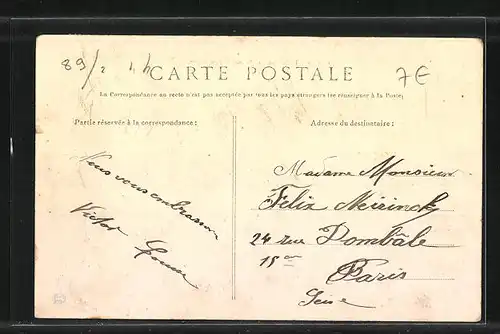 89/2 4h
7€
CARTE POSTALE
La Correspondance au recto n'est pas acceptée par tous les pays étrangers (se renseigner à la Poste)
Partie réservée à la correspondance :
Adresse du destinataire :
Nous vous embrassons
Victor Louise
Madame Monsieur
Félix Meirinck
24 rue Dombâle
15em
Paris
Seine